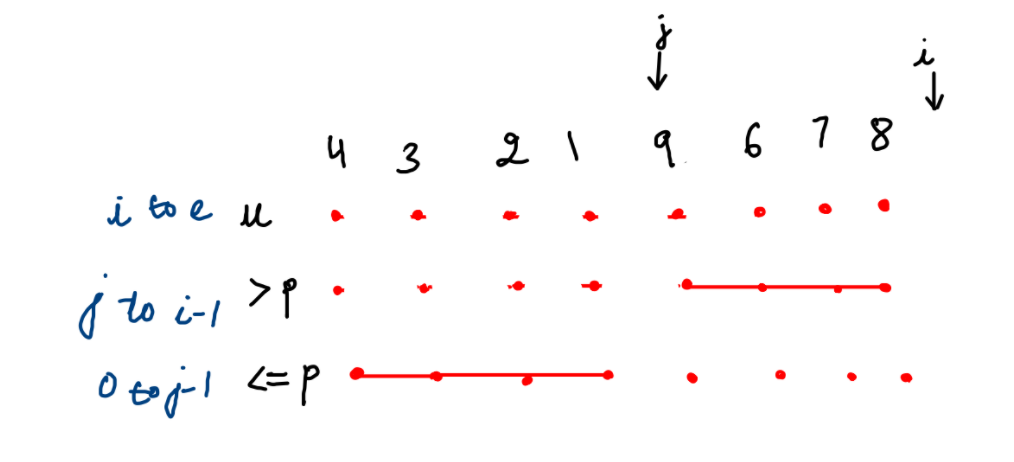 j
i
4 3 2 1 9 6 7 8
i to e u
j to i-1 >p
0 to j-1 <=p